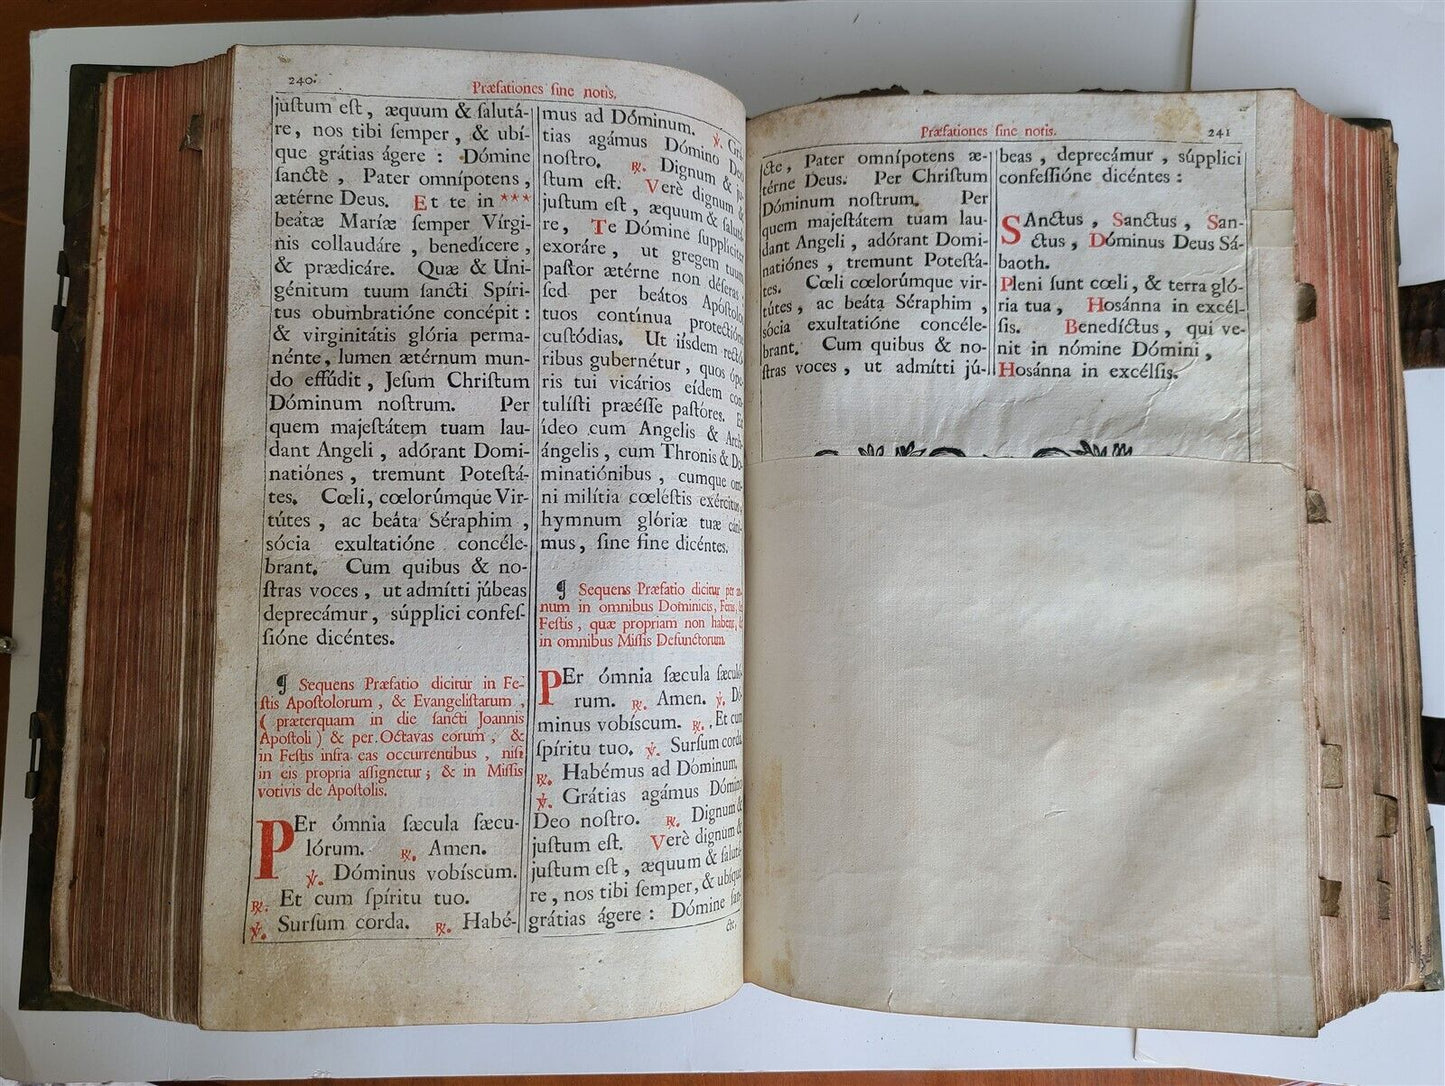 240.
Præfationes ſine notis.
juſtum eſt , æquum & ſalutá-
re, nos tibi ſemper , & ubí-
que grátias ágere : Dómine
ſancte , Pater omnípotens ,
ætérne Deus. Et te in ***
beátæ Maríæ ſemper Vírgi-
nis collaudáre , benedícere ,
& prædicáre. Quæ & Uni-
génitum tuum ſancti Spíri-
tus obumbratióne concépit :
& virginitátis glória perma-
nénte, lumen ætérnum mun-
do effúdit , Jeſum Chriſtum
Dóminum noſtrum. Per
quem majeſtátem tuam lau-
dant Angeli , adórant Domi-
natiónes , tremunt Poteſtá-
tes. Cœli, cœlorúmque Vir-
tútes , ac beáta Séraphim ,
sócia exultatióne concéle-
brant. Cum quibus & no-
ſtras voces , ut admítti júbeas
deprecámur, súpplici confeſ-
ſióne dicéntes.
¶ Sequens Præfatio dicitur in Fe-
ſtis Apoſtolorum , & Evangeliſtarum ,
( præterquam in die ſancti Joannis
Apoſtoli ) & per Octavas eorum , &
in Feſtis infra eas occurrentibus , niſi
in eis propria aſſignetur ; & in Miſſis
votivis de Apoſtolis.
PEr ómnia ſæcula ſæcu-
lórum. ℟. Amen.
℣. Dóminus vobíscum.
℟. Et cum ſpíritu tuo.
℣. Surſum corda. ℟. Habé-
mus ad Dóminum. ℣. Grá-
tias agámus Dómino Deo
noſtro. ℟. Dignum & ju-
ſtum eſt. Verè dignum &
juſtum eſt , æquum & ſalutá-
re, Te Dómine ſupplíciter
exoráre , ut gregem tuum
paſtor ætérne non déſeras :
ſed per beátos Apóſtolos
tuos contínua protectióne
cuſtódias. Ut iíſdem rectó-
ribus gubernétur , quos ópe-
ris tui vicários eídem con-
tulíſti præéſſe paſtóres. Et
ídeo cum Angelis & Arch-
ángelis, cum Thronis & Do-
minatiónibus , cumque om-
ni milítia cœléſtis exércitus,
hymnum glóriæ tuæ cáni-
mus , ſine fine dicéntes.
¶ Sequens Præfatio dicitur per an-
num in omnibus Dominicis, Feriis, &
Feſtis , quæ propriam non habent, &
in omnibus Miſſis Defunctorum.
PEr ómnia ſæcula ſæculó-
rum. ℟. Amen. ℣. Dó-
minus vobíscum. ℟. Et cum
ſpíritu tuo. ℣. Surſum corda.
℟. Habémus ad Dóminum.
℣. Grátias agámus Dómino
Deo noſtro. ℟. Dignum &
juſtum eſt. Verè dignum &
juſtum eſt , æquum & ſalutá-
re , nos tibi ſemper, & ubíque
grátias ágere : Dómine ſan-
cte,
Præfationes ſine notis.
241
cte , Pater omnípotens æ-
térne Deus. Per Chriſtum
Dóminum noſtrum. Per
quem majeſtátem tuam lau-
dant Angeli , adórant Domi-
natiónes , tremunt Poteſtá-
tes. Cœli cœlorúmque vir-
tútes , ac beáta Séraphim ,
sócia exultatióne concéle-
brant. Cum quibus & no-
ſtras voces , ut admítti jú-
beas , deprecámur , súpplici
confeſſióne dicéntes :
SAnctus , Sanctus , San-
ctus , Dóminus Deus Sá-
baoth.
Pleni ſunt cœli, & terra gló-
ria tua , Hosánna in excél-
ſis. Benedíctus , qui ve-
nit in nómine Dómini ,
Hosánna in excélſis.